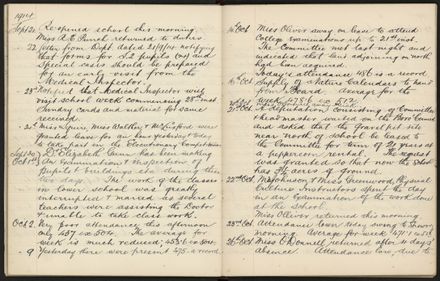 1914
Sept 21 Re-opened school this morning.
Miss A. E. Purcell returned to duties
22 Letter from Dept. dated 21/9/14 notifying
that forms for S.2 pupils and
special cases should be prepared
for an early visit from the
Medical Inspector.
23rd Notified that Medical Inspector will
visit school week commencing 28th inst
Sundry cards and material for same
received.
25th Misses Squire, Bartley &
granted leave for an hour yesterday & today
to take part in the Elocutionary Competitions
Sept 30th Dr Elizabeth Gunn has been making
Oct 1st an Examination & inspection of
Pupils & buildings etc during these
two days. The work of the classes
in lower school was greatly
interrupted & marred as several
teachers were assisting the Doctor
& unable to take class work.
Oct 2 Very poor attendance this afternoon
only 437 ex 504. The average for
week is much reduced; ex 504.
9 Yesterday there were present 495 a record.
16th Oct Miss Oliver away on leave to attend
College Examinations up to 21st inst.
The Committee met last night and
indicated that land adjoining on north
had been acquired.
Today's attendance 486 is a record
16th Oct Supply of Nature Calendars to hand
from Board. Average for the
week 478.6 ex 512
21st Oct A deputation consisting of Committee
& headmaster waited on the Boro' Council
and asked that the Gravel pit site
near North of School be leased to
the Committee for term of 21 years at
a peppercorn rental. The request
was granted. So that now the School
has 5¾ acres of ground.
22nd Oct Miss & Miss Greenwood, Physical
Culture Instructors spent the day
in an examination of the work done
at the school.
Miss Oliver returned this morning
23rd Oct Attendance lower today owing to showery
morning. Average for week 471.1 ex 511
26th Oct Miss O'Donnell returned after 11 days'
absence. Attendance low, due to